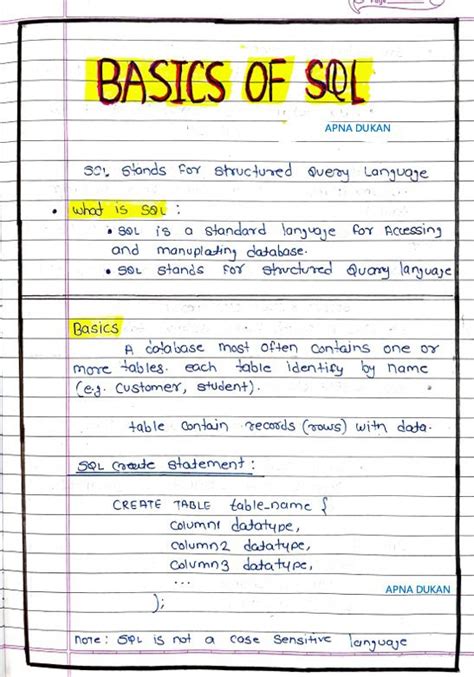 Page
BASICS OF SQL
APNA DUKAN
SQL stands for structured Query Language
• what is SQL :
• SQL is a standard language for Accessing
and manuplating database.
• SQL stands for structured Query language
Basics
A database most often contains one or
more tables. each table identify by name
(e.g. customer, student).
table contain records (rows) with data.
SQL Create statement :
CREATE TABLE table_name {
column1 datatype,
column2 datatype,
column3 datatype,
...
APNA DUKAN
);
note : SQL is not a case sensitive language